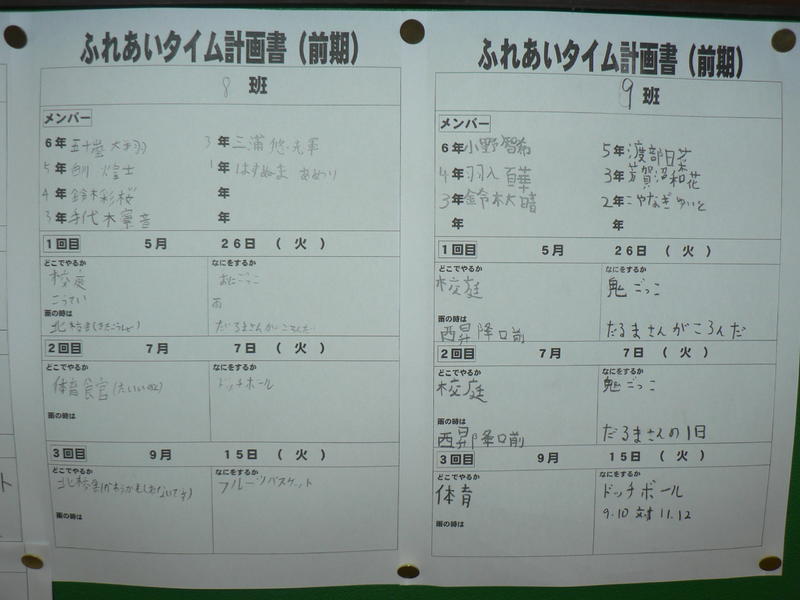 ふれあいタイム計画書（前期）
8 班
メンバー
6年 五十嵐 大翔
3年 三浦 悠
5年
1年 はすぬま あめり
4年 鈴木彩桜
年
3年
年
1回目 5月 26日 （火）
どこでやるか
校庭
こうてい
雨の時は
北校舎
なにをするか
おにごっこ
雨
だるまさんがころんだ
2回目 7月 7日 （火）
どこでやるか
体育館
雨の時は
なにをするか
ドッチボール
3回目 9月 15日 （火）
どこでやるか
北校舎
雨の時は
なにをするか
フルーツバスケット
ふれあいタイム計画書（前期）
9 班
メンバー
6年 小野智希
5年 渡部日菜
4年 羽入 百華
3年 芳賀沼和花
3年 鈴木大晴
2年 こやなぎ ゆいと
年
年
1回目 5月 26日 （火）
どこでやるか
校庭
雨の時は
西昇降口前
なにをするか
鬼ごっこ
だるまさんがころんだ
2回目 7月 7日 （火）
どこでやるか
校庭
雨の時は
西昇降口前
なにをするか
鬼ごっこ
だるまさんの1日
3回目 9月 15日 （火）
どこでやるか
体育
雨の時は
なにをするか
ドッチボール
9.10 対 11.12
ト